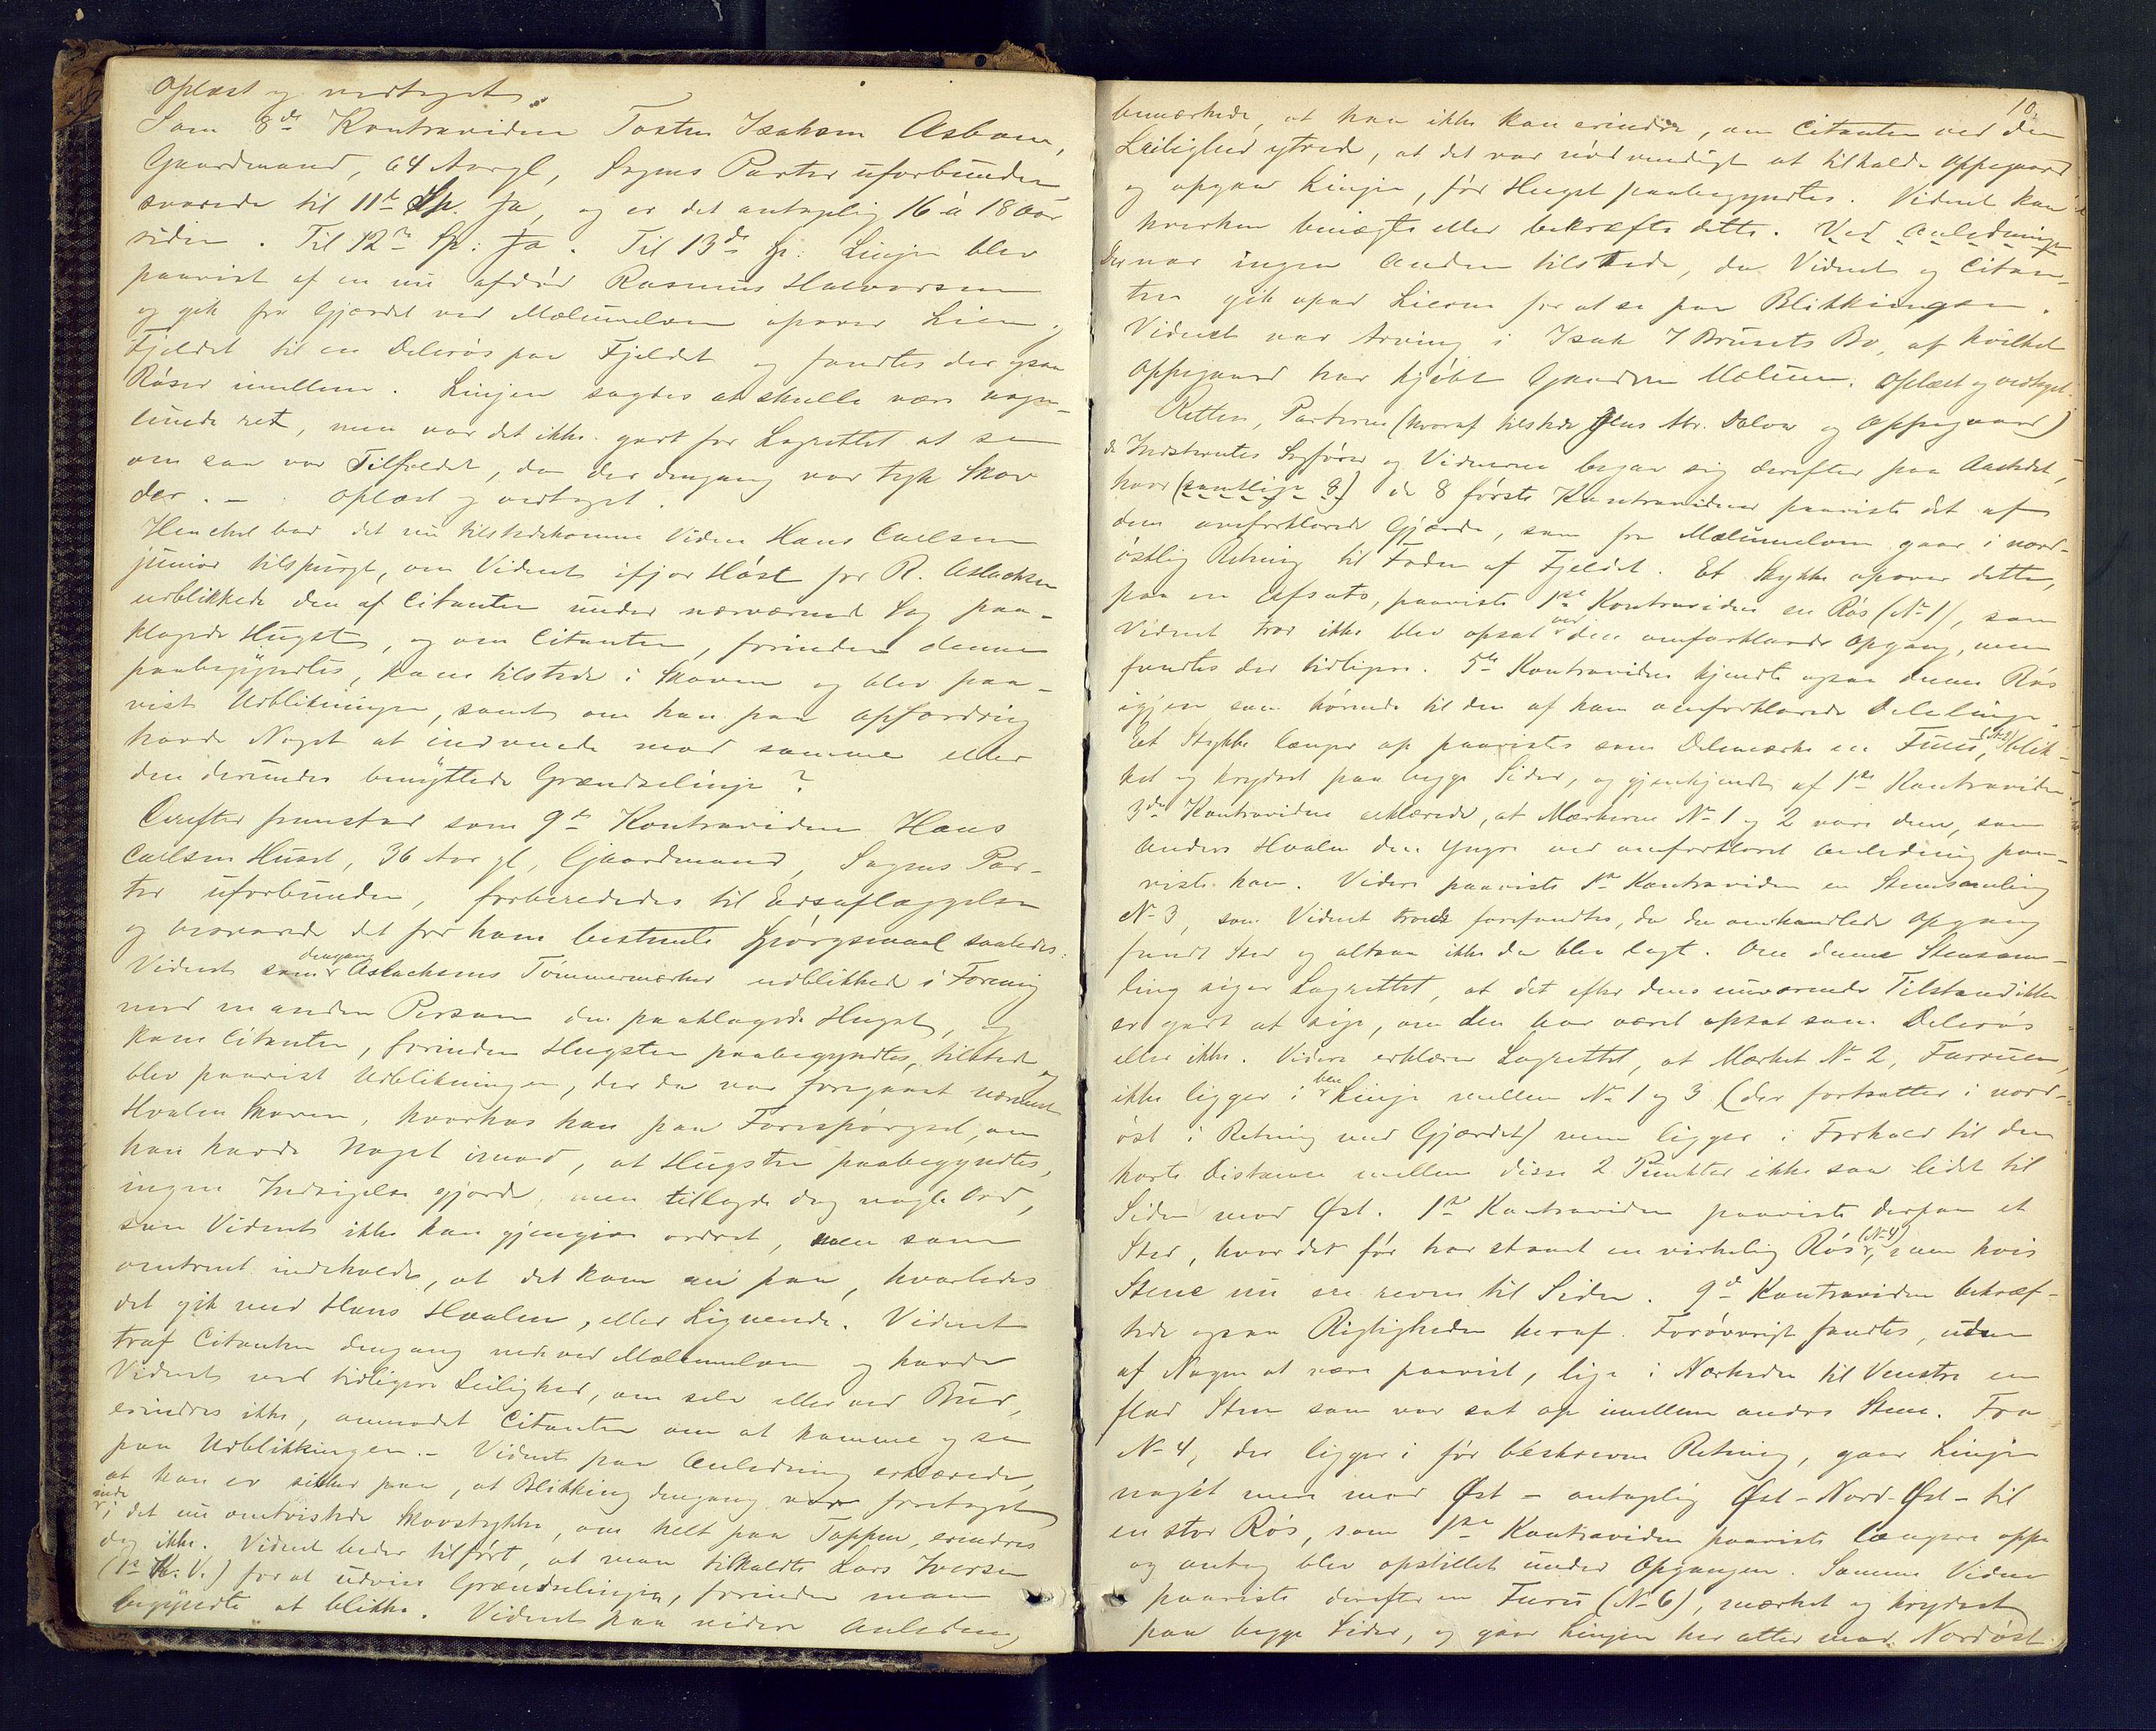 Oplæst og vedtaget.
Som 8de Kontravidne Tosten Isaksen Asbane,
Gaardmand, 64 Aar gl, Sagens Parter uforbunden
svarede til 11te Sp. Ja, og er det antaglig 16 à 18 Aar
siden. Til 12te Sp: Ja. Til 13de Sp: Linjen blev
paavist af en nu afdød Rasmus Halvorsen
og gik fra Gjærdet ved Mælumelven opover Lien og
Fjeldet til en Delerøs paa Fjeldet og fandtes der ogsaa
Røser imellem. Linjen sagdes at skulle være nogen-
lunde ret, men var det ikke godt for Lagrettet at se
om saa var Tilfældet, da der dengang var tyk Skov
der. – Oplæst og vedtaget.
Henchel bad det nu tilstedekomne Vidne Hans Carlsen
junior tilspurgt, om Vidnet ifjor Høst for R. Aslachsen
udblikkede den af Citanten under nærværende Sag paa-
klagede Hugst, og om Citanten, forinden denne
paabegyndtes, kom tilstede i Skoven og blev paa-
vist Udblikningen, samt om han paa Opfordring
havde Noget at indvende mod samme eller
den derunder benyttede Grændselinje?
Derefter fremstod som 9de Kontravidne Hans
Carlsen Huset, 36 Aar gl, Gaardmand, Sagens Par-
ter uforbunden, forberededes til Edsaflæggelse
og besvarede det for ham bestemte Spørgsmaal saaledes:
Vidnet som dengang Aslachsens Tømmermærker udblikkede i Forening
med en anden Person den paaklagede Hugst, og
kom Citanten, forinden Hugsten paabegyndtes, tilstede og
blev paavist Udblikningen, der da var foregaaet nærmest
Hvalen Skoven, hvorhos han paa Forespørgsel, om
han havde Noget imod, at Hugsten paabegyndtes,
ingen Indsigelse gjorde, men tillagde dog nogle Ord,
som Vidnet ikke kan gjengive ordret, men som
omtrent indeholdt, at det kom an paa, hvorledes
det gik med Hans Hvalen, eller Lignende. Vidnet
traf Citanten dengang nede ved Mælumelven og havde
Vidnet ved tidligere Leilighed, om selv eller ved Bud,
erindres ikke, anmodet Citanten om at komme og se
paa Udblikkingen. – Vidnet paa Anledning erklærede,
at han er sikker paa, at Blikking dengang var foretaget
inde i det nu omtvistede Skovstykke, om helt paa Toppen, erindres
dog ikke. Vidnet beder tilført, at man tilkaldte Lars Iversen
(1ste K. V.) for at udvise Grændselinjen, forinden man
begyndte at blikke. Vidnet paa videre Anledning
10.
bemærkede, at han ikke kan erindre, om Citanten ved den
Leilighed ytrede, at det var nødvendigt at tilkalde Oppegaard
og opgaa Linjen, før Hugst paabegyndtes. Vidnet kan
hverken benægte eller bekræfte dette. Ved Anledningen
Der var ingen Anden tilstede, da Vidnet og Citan-
ten gik opad Lierne for at se paa Blikkingen.
Vidnet var Arving i Isak I Brusets Bo, af hvilket
Oppegaard har kjøbt Gaarden Mælum. Oplæst og vedtaget.
Retten, Parterne (hvoraf tilstede Jens Mr. Dolva og Oppegaard)
de Indstevntes Sagfører og Vidnerne begav sig derefter paa Aastedet,
hvor (samtlige 8) de 8 første Kontravidner paaviste det af
dem omforklarede Gjærde, som fra Mælumelven gaar i nord-
østlig Retning til Foden af Fjeldet. Et Stykke opover dette,
paa en Afsats, paaviste 1ste Kontravidne en Røs (No 1), som
Vidnet tror ikke blev opsat ved den omforklarede Opgang, men
fandtes der tidligere. 5te Kontravidne kjendte ogsaa denne Røs
igjen som hørende til den af ham omforklarede Delelinje.
Et Stykke længer op paavistes som Delemærke en Furu, (No 2) blik-
ket og krydset paa begge Sider, og gjenkjendt af 1ste Kontravidne.
3die Kontravidne erklærede, at Mærkerne No 1 og 2 vare dem, som
Anders Hvalen den Yngre ved omforklaret Anledning paa-
viste ham. Videre paaviste 1ste Kontravidne en Stensamling
No 3, som Vidnet trode forefandtes, da den omhandlede Opgang
fandt Sted og altsaa ikke da blev lagt. Om denne Stensam-
ling siger Lagrettet, at det efter dens nuværende Tilstand ikke
er godt at sige, om den har været opsat som Delerøs
eller ikke. Videre erklærer Lagrettet, at Mærket No 2, Furuen,
ikke ligger i bene Linje mellem No 1 og 3 (der fortsætter i nord-
øst i Retning med Gjærdet) men ligger i Forhold til den
korte Distance mellem disse 2 Punkter ikke saa lidet til
Siden mod Øst. 1ste Kontravidne paaviste derpaa et
Sted, hvor der før har staaet en virkelig Røs (No 4), men hvis
Stene nu ere revne til Siden. 9de Kontravidne bekræf-
tede ogsaa Rigtigheden heraf. Forøvrigt fandtes, uden
af Nogen at være paavist, lige i Nærheden til Venstre en
flad Sten som var sat op imellem andre Stene. Fra
No 4, der ligger i før beskrevne Retning, gaar Linjen
noget mere mod Øst – antaglig Øst-Nord-Øst – til
en stor Røs, som 1ste Kontravidne paaviste længere oppe
og antog blev opstillet under Opgangen. Samme Vidne
paaviste derefter en Furu (No 6), mærket og krydset
paa begge Sider, og gaar Linjen her atter mod Nordøst.